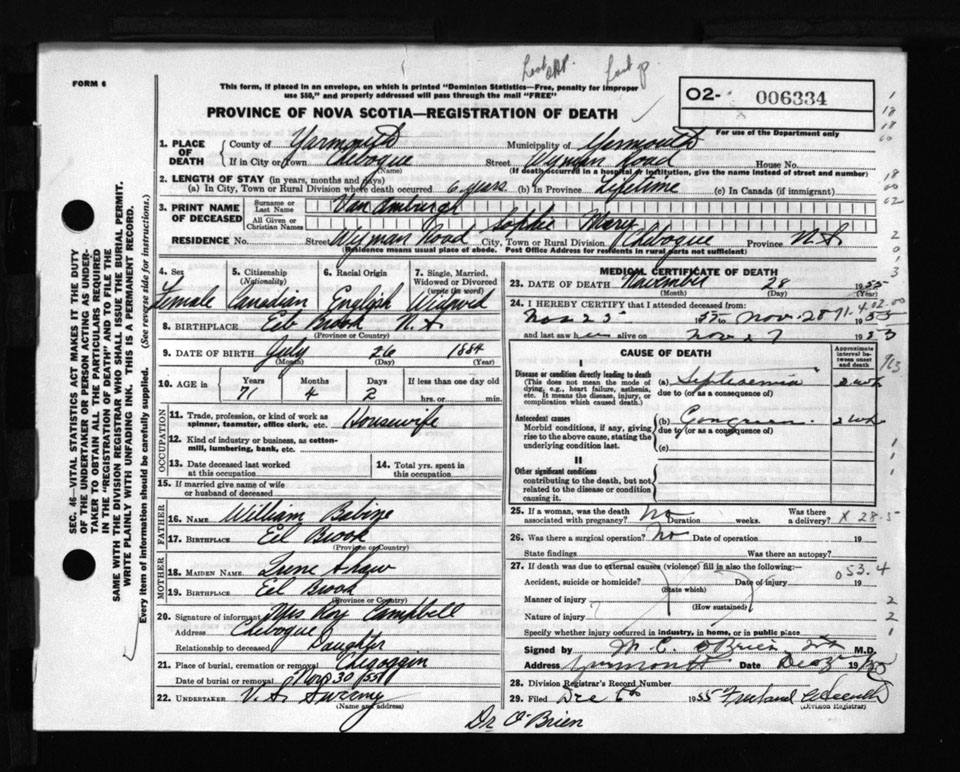 FORM 6
This form, if placed in an envelope, on which is printed "Dominion Statistics—Free, penalty for improper
use $50," and properly addressed will pass through the mail "FREE"
O2- 006334
For use of the Department only
PROVINCE OF NOVA SCOTIA—REGISTRATION OF DEATH
1. PLACE OF DEATH
County of Yarmouth Municipality of Yarmouth
If in City or Town Chebogue Street Wyman Road House No.
(Name) (If death occurred in a hospital or institution, give the name instead of street and number)
2. LENGTH OF STAY (in years, months and days)
(a) In City, Town or Rural Division where death occurred 6 years (b) In Province Lifetime (c) In Canada (if immigrant)
3. PRINT NAME OF DECEASED
Surname or Last Name Van Amburgh
All Given or Christian Names Sophie Mary
RESIDENCE No. Street Wyman Road City, Town or Rural Division Chebogue Province N.S.
(Residence means usual place of abode. Post Office Address for residents in rural parts not sufficient)
4. Sex Female
5. Citizenship (Nationality) Canadian
6. Racial Origin English
7. Single, Married, Widowed or Divorced (write the word) Widowed
8. BIRTHPLACE Eel Brook N.S.
(Province or Country)
9. DATE OF BIRTH July 26 1884
(Month) (Day) (Year)
10. AGE in Years 71 Months 4 Days 2 If less than one day old hrs. or min.
OCCUPATION
11. Trade, profession, or kind of work as spinner, teamster, office clerk, etc. Housewife
12. Kind of industry or business, as cotton-mill, lumbering, bank, etc.
13. Date deceased last worked at this occupation
14. Total yrs. spent in this occupation
15. If married give name of wife or husband of deceased
FATHER
16. NAME William Babine
17. BIRTHPLACE Eel Brook
(Province or Country)
MOTHER
18. MAIDEN NAME
19. BIRTHPLACE Eel Brook
(Province or Country)
20. Signature of informant Mrs Roy Campbell
Address Chebogue
Relationship to deceased Daughter
21. Place of burial, cremation or removal Chegoggin
Date of burial or removal Nov 30 1955
22. UNDERTAKER V.S. Sweeny
(Name and address)
MEDICAL CERTIFICATE OF DEATH
23. DATE OF DEATH November 28 1955
(Month) (Day) (Year)
24. I HEREBY CERTIFY that I attended deceased from:
Nov 25 1955 to Nov. 28 1955
and last saw her alive on Nov 27 1955
CAUSE OF DEATH
Approximate interval between onset and death
I
Disease or condition directly leading to death
(This does not mean the mode of dying, e.g., heart failure, asthenia, etc. It means the disease, injury, or complication which caused death.)
(a) Septicemia 2 wks
due to (or as a consequence of)
Antecedent causes
Morbid conditions, if any, giving rise to the above cause, stating the underlying condition last.
(b) Gangrene 2 wks
due to (or as a consequence of)
(c)
II
Other significant conditions
contributing to the death, but not related to the disease or condition causing it.
25. If a woman, was the death associated with pregnancy? No Duration weeks. Was there a delivery? X 28.5
26. Was there a surgical operation? No Date of operation 19
State findings Was there an autopsy?
27. If death was due to external causes (violence) fill in also the following:—
053.4
Accident, suicide or homicide? Date of injury 19
(State which)
Manner of injury
(How sustained)
Nature of injury
Specify whether injury occurred in industry, in home, or in public place
Signed by M. C. O'Brien M.D.
Address Yarmouth Date Dec 2 1955
28. Division Registrar's Record Number
29. Filed Dec 6th 1955
(Division Registrar)
Dr O'Brien
SEC. 46—VITAL STATISTICS ACT MAKES IT THE DUTY
OF THE UNDERTAKER OR PERSON ACTING AS UNDER-
TAKER TO OBTAIN ALL THE PARTICULARS REQUIRED
IN THE "REGISTRATION OF DEATH" AND TO FILE THE
SAME WITH THE DIVISION REGISTRAR WHO SHALL ISSUE THE BURIAL PERMIT.
WRITE PLAINLY WITH UNFADING INK. THIS IS A PERMANENT RECORD.
Every item of information should be carefully supplied. (See reverse side for instructions.)